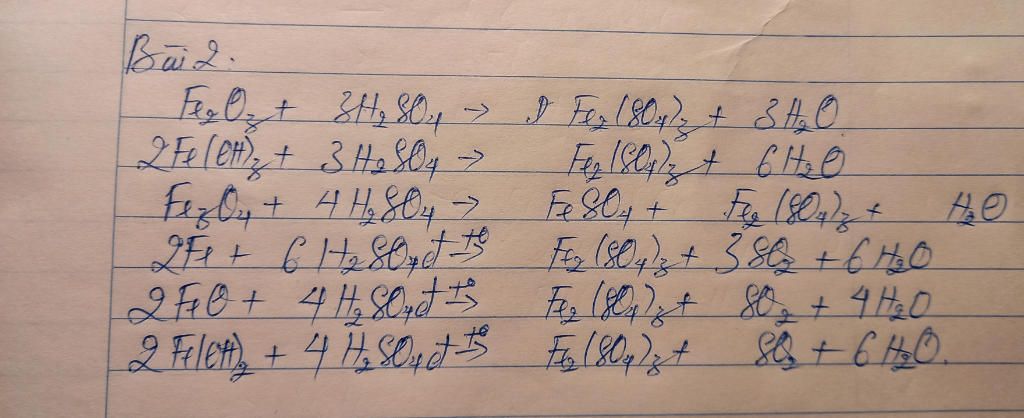 Bài 2.
Fe₂O₃ + 3H₂SO₄ → Fe₂(SO₄)₃ + 3H₂O
2Fe(OH)₃ + 3H₂SO₄ → Fe₂(SO₄)₃ + 6H₂O
Fe₃O₄ + 4H₂SO₄ → FeSO₄ + Fe₂(SO₄)₃ + H₂O
2Fe + 6H₂SO₄đ t°→ Fe₂(SO₄)₃ + 3SO₂ + 6H₂O
2FeO + 4H₂SO₄đ t°→ Fe₂(SO₄)₃ + SO₂ + 4H₂O
2Fe(OH)₂ + 4H₂SO₄đ t°→ Fe₂(SO₄)₃ + SO₂ + 6H₂O.